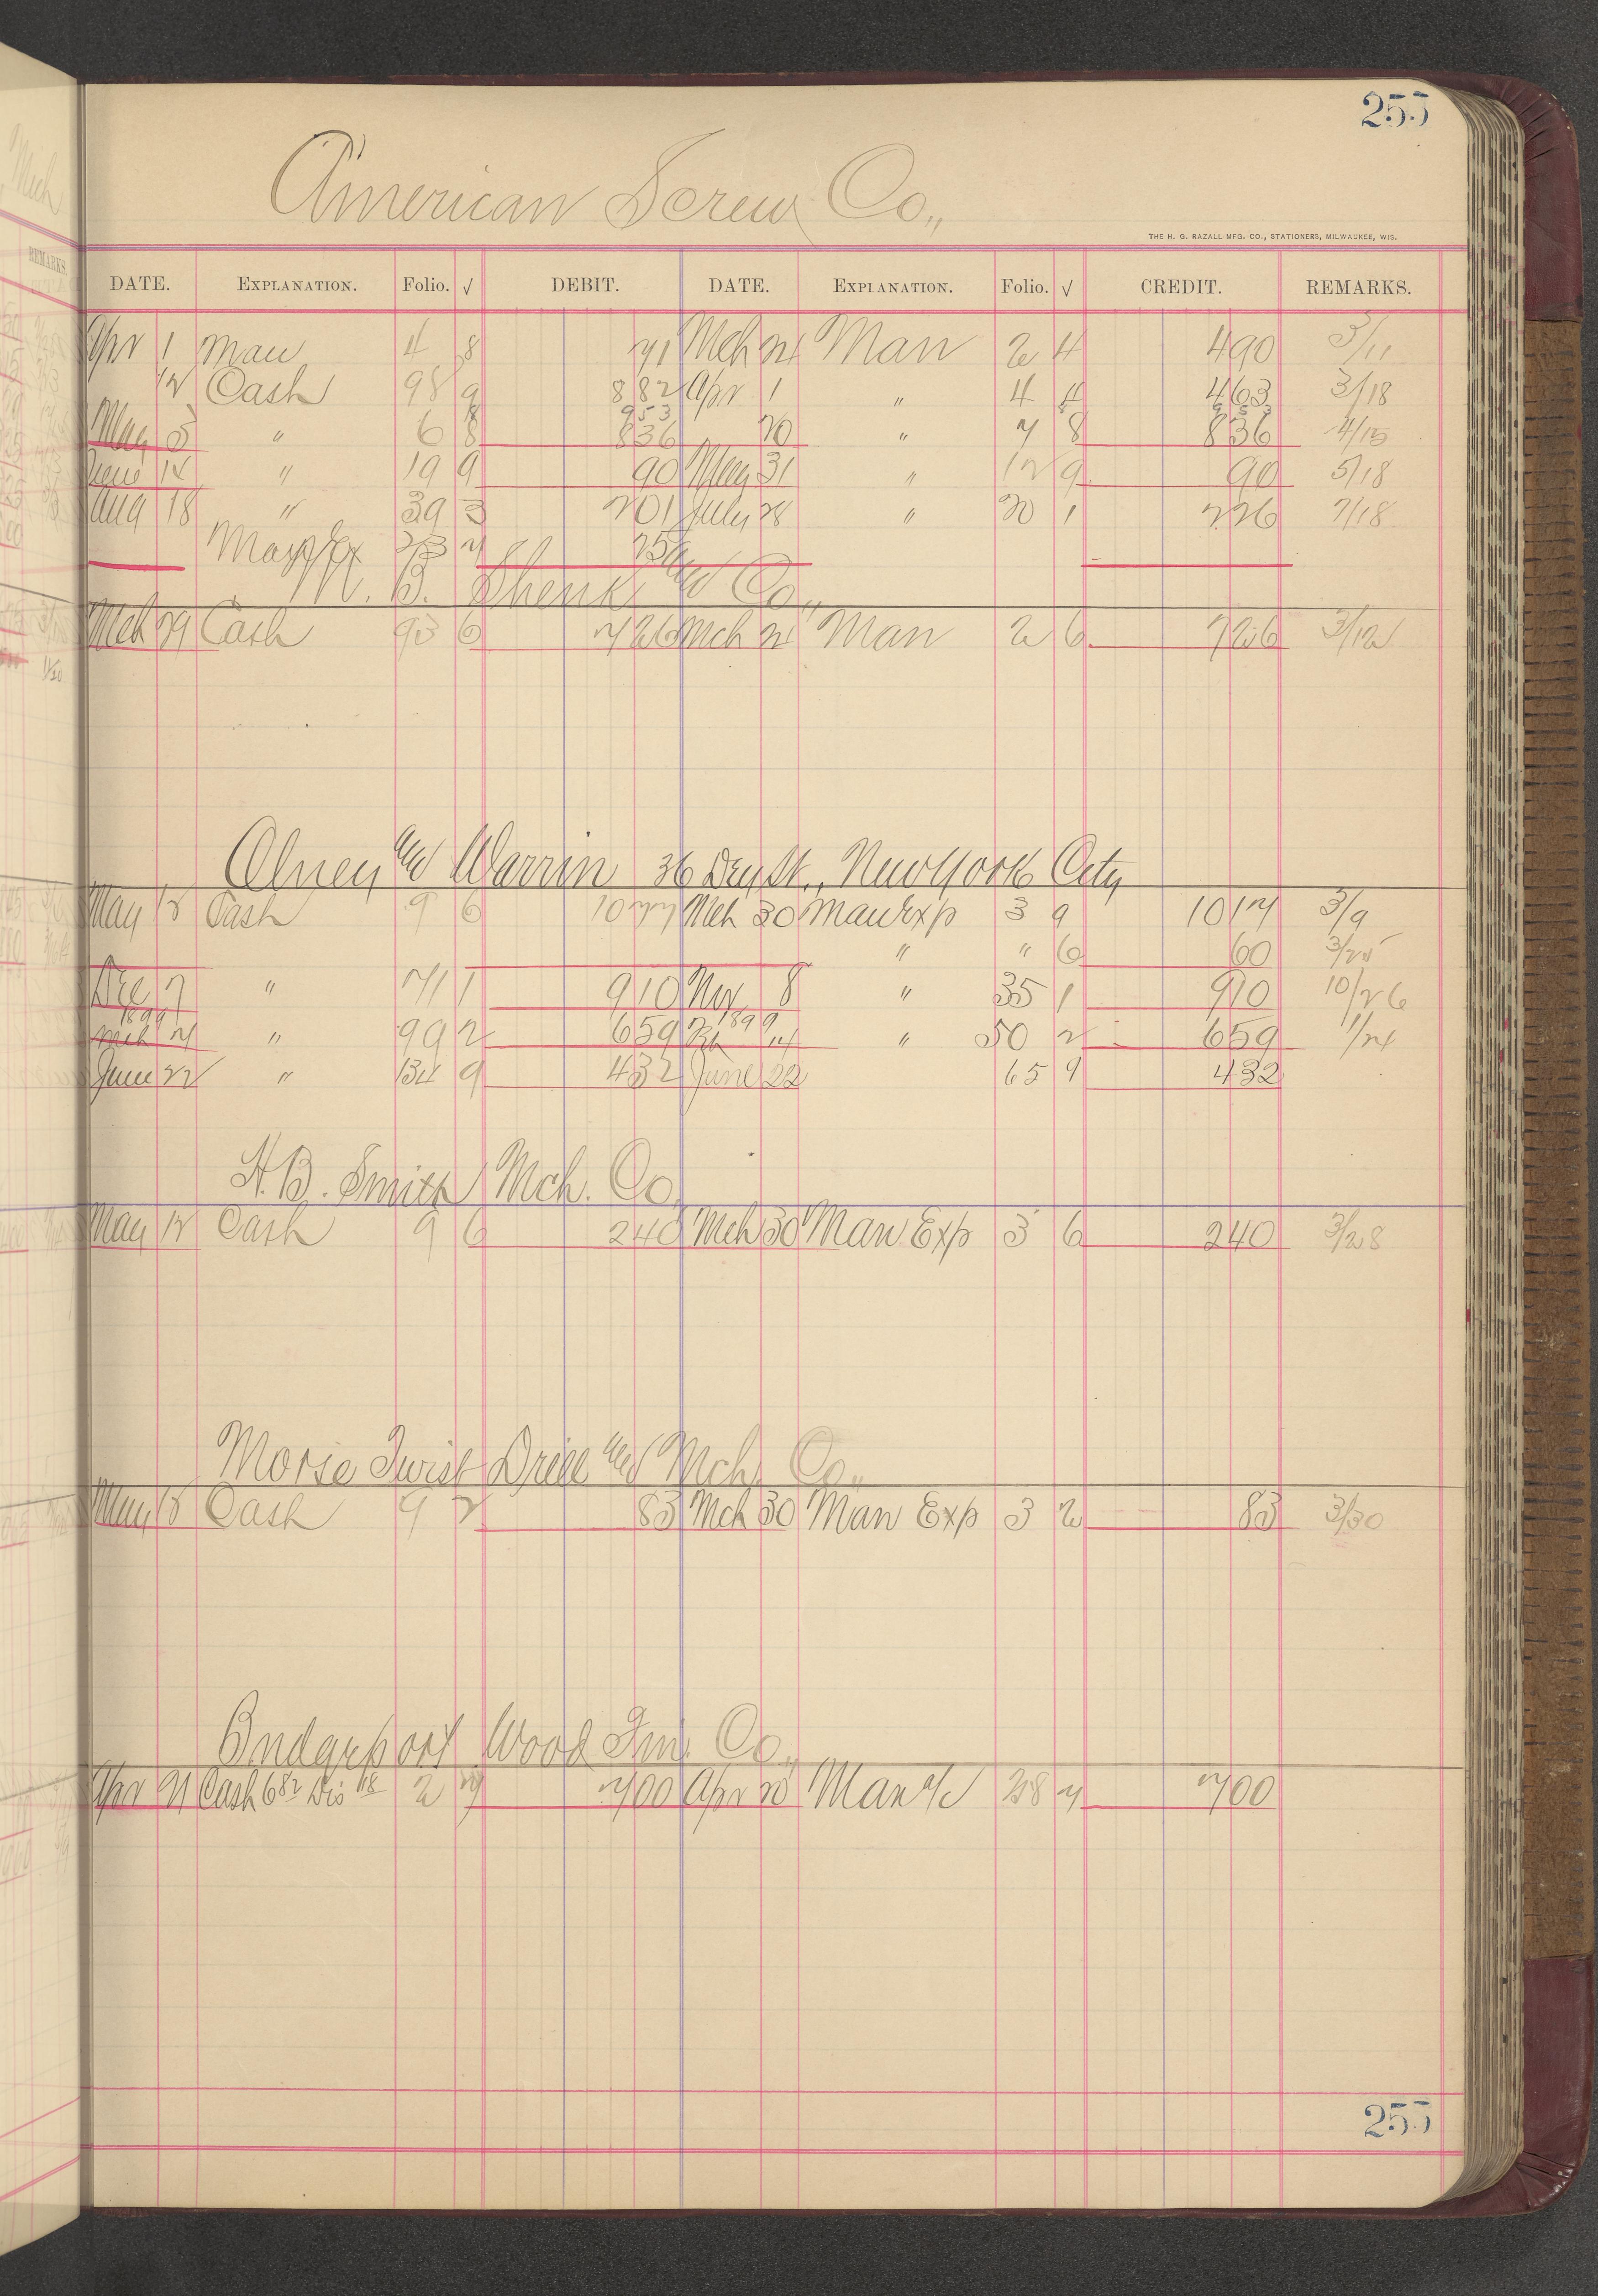 255
American Screw Co.,
THE H. G. RAZALL MFG. CO., STATIONERS, MILWAUKEE, WIS.
DATE. EXPLANATION. Folio. √ DEBIT. DATE. EXPLANATION. Folio. √ CREDIT. REMARKS.
Apr 1 Man 4 8 71 Mch 21 Man 2 4 490 3/11
12 Cash 98 9 882 Apr 1 " 4 4 463 3/18
953 953
May 5 " 6 8 836 20 " 7 8 836 4/15
June 14 " 19 9 90 May 31 " 12 9 90 5/18
Aug 18 " 39 3 201 July 28 " 20 1 226 7/18
Man Ex 7 25
M. B. Shenk and Co.,
Mch 29 Cash 93 6 726 Mch 21 Man 2 6 726 3/12
Olney and Warrin 36 Dey St., New York City
May 12 Cash 9 6 1077 Mch 30 Man Exp 3 9 1017 3/9
" " 6 60 3/25
Dec 7 " 71 1 910 Nov 8 " 35 1 910 10/26
1899 1899
Mch 21 " 99 2 659 Feb 14 " 50 2 659 1/24
June 22 " 134 9 432 June 22 65 9 432
H. B. Smith Mch. Co.
May 12 Cash 9 6 240 Mch 30 Man Exp 3 6 240 3/28
Morse Twist Drill and Mch. Co.,
May 12 Cash 9 2 83 Mch 30 Man Exp 3 2 83 3/30
Bridgeport Wood Fin. Co.,
Apr 21 Cash 6 82 Dis 18 2 7 700 Apr 20 Man a/c 258 7 700
255